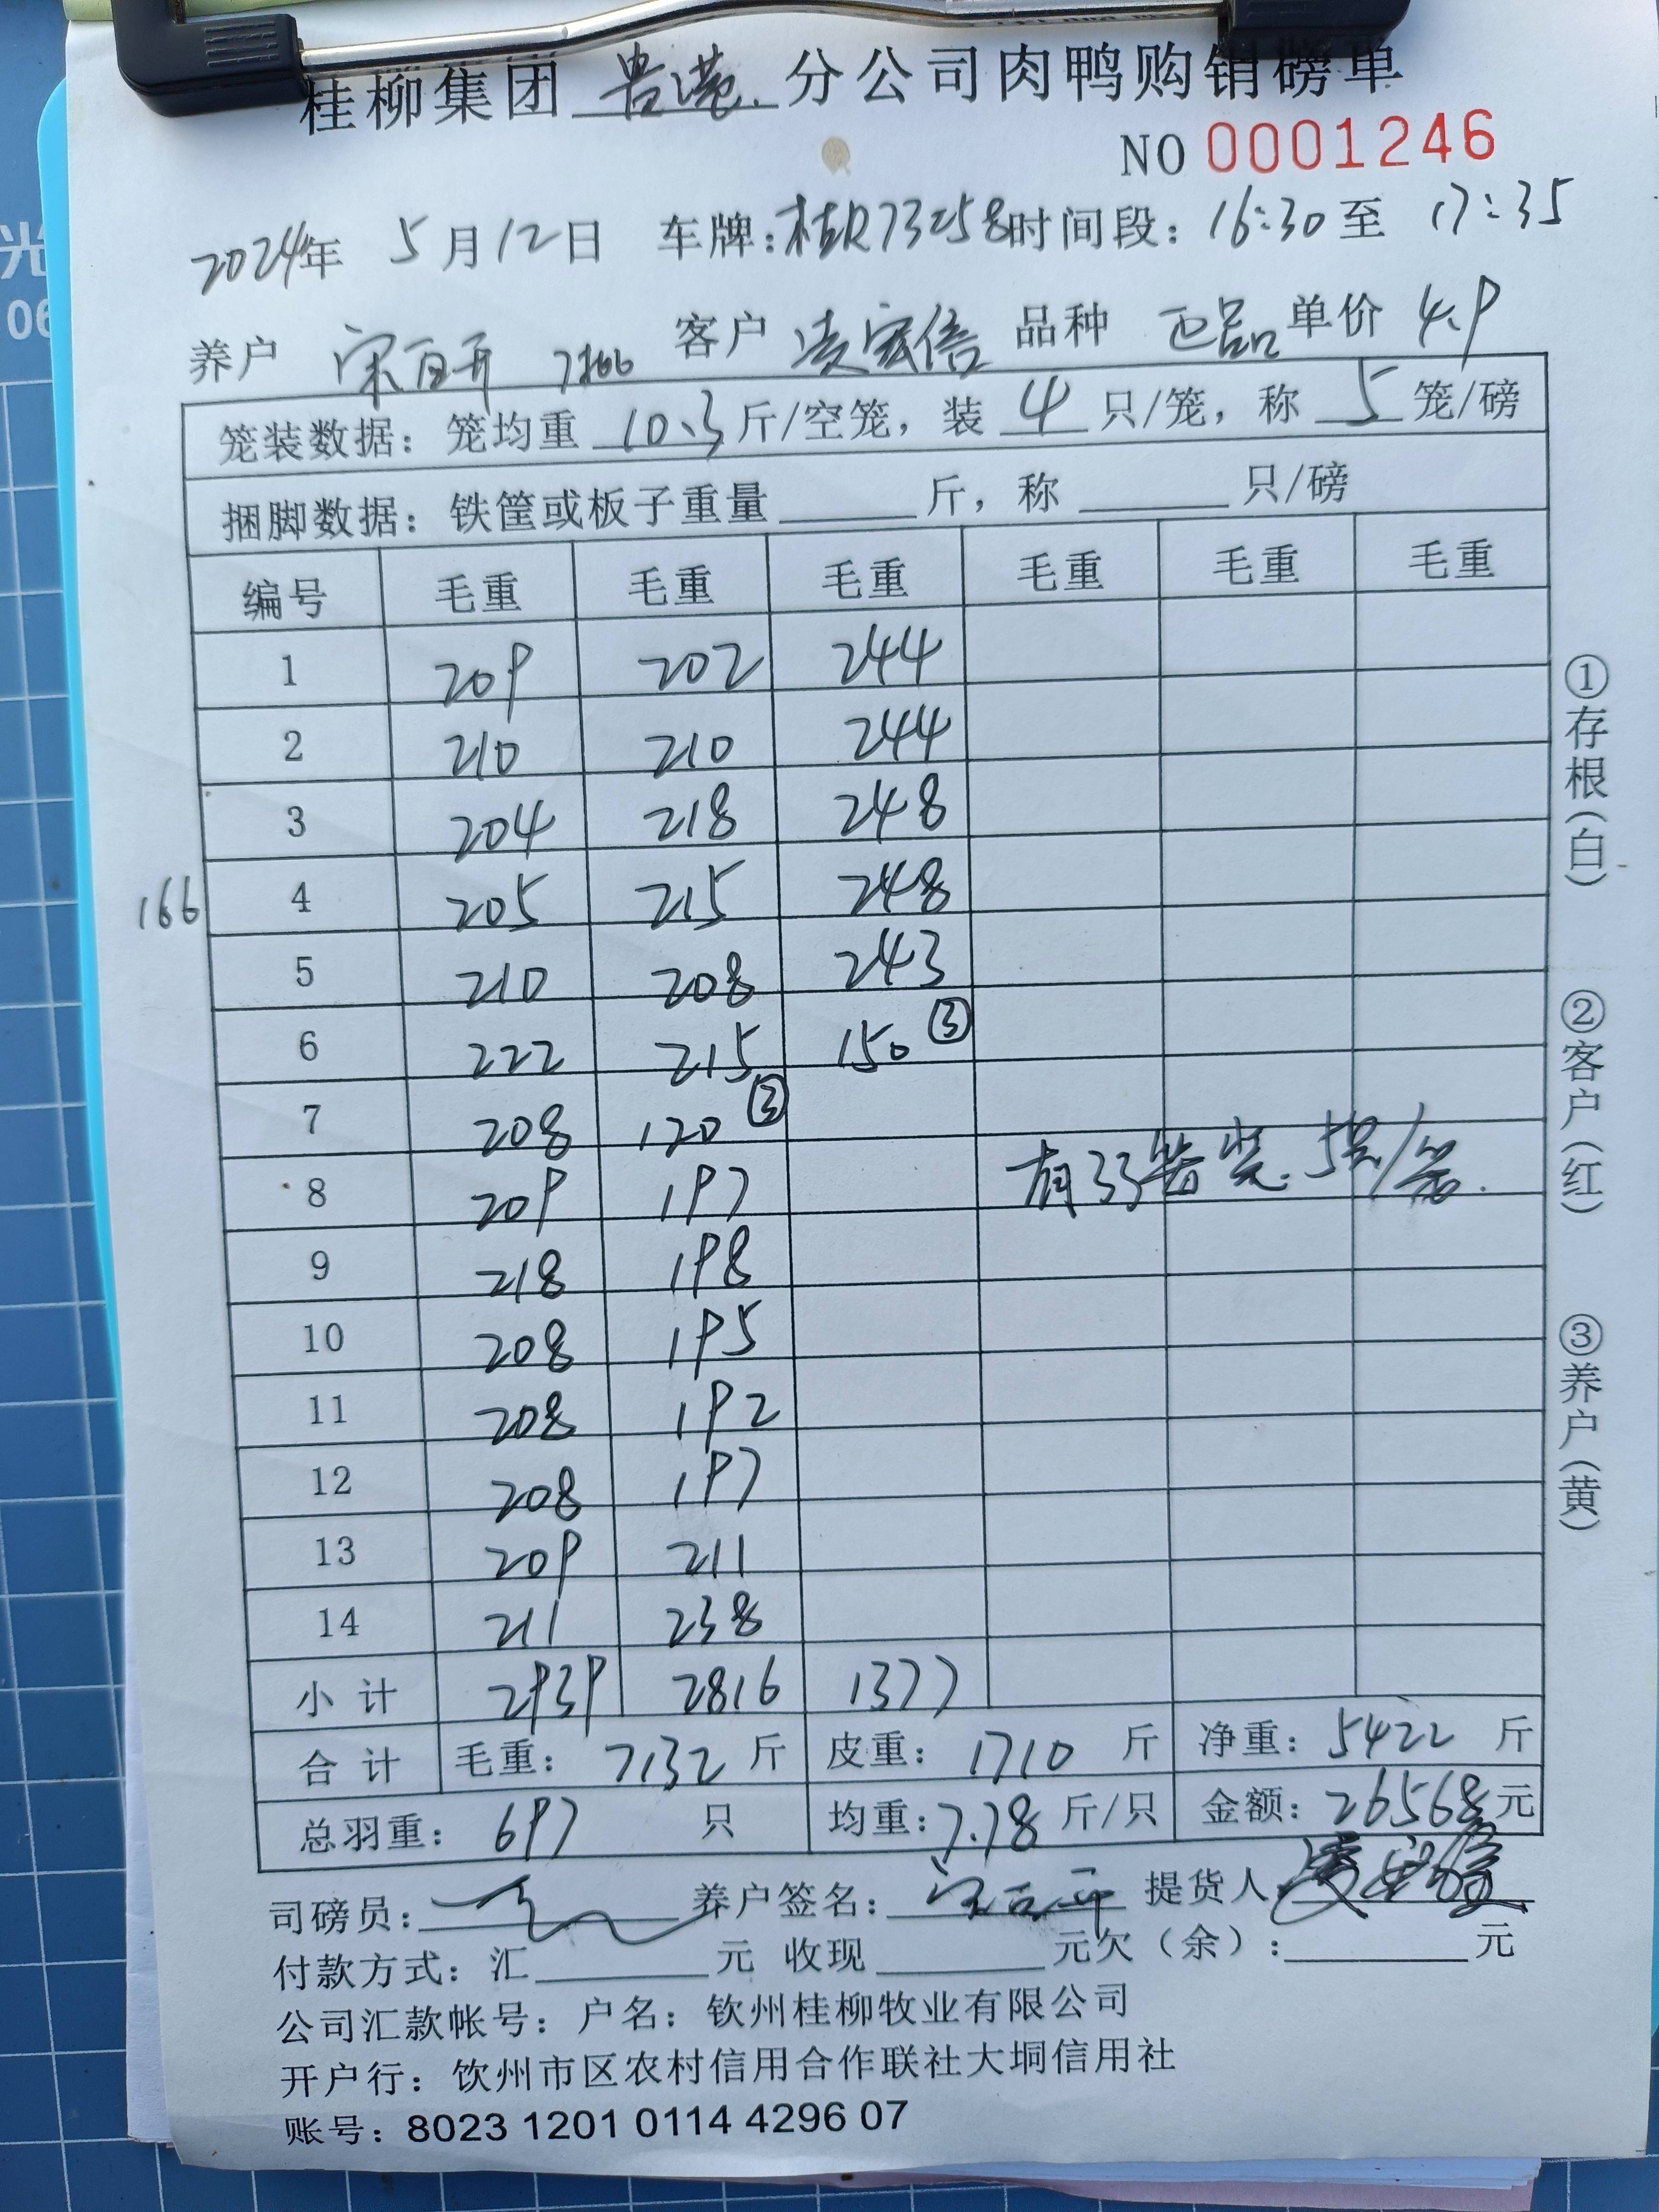 桂柳集团 贵港 分公司肉鸭购销磅单
NO 0001246
2024年 5月12日 车牌:桂R73258 时间段: 16:30 至 17:35
养户 宋百开 客户 凌宏信 品种 正品 单价 4.9
笼装数据: 笼均重 10.3 斤/空笼, 装 4 只/笼, 称 5 笼/磅
捆脚数据: 铁筐或板子重量 斤, 称 只/磅
编号 毛重 毛重 毛重 毛重 毛重 毛重
1 209 202 244
2 210 210 244
3 204 218 248
166 4 205 215 248
5 210 208 243
6 222 215 150 ③
7 208 120 ③
8 209 197
有 装 5只/笼.
9 218 198
10 208 195
11 208 192
12 208 197
13 209 211
14 211 238
小计 2939 2816 1377
合计 毛重: 7132 斤 皮重: 1710 斤 净重: 5422 斤
总羽重: 697 只 均重: 7.78 斤/只 金额: 26568 元
司磅员: 养户签名: 提货人:
付款方式: 汇 元 收现 元欠(余): 元
公司汇款帐号: 户名: 钦州桂柳牧业有限公司
开户行: 钦州市区农村信用合作联社大垌信用社
账号: 8023 1201 0114 4296 07
①存根(白)
②客户(红)
③养户(黄)
光
06